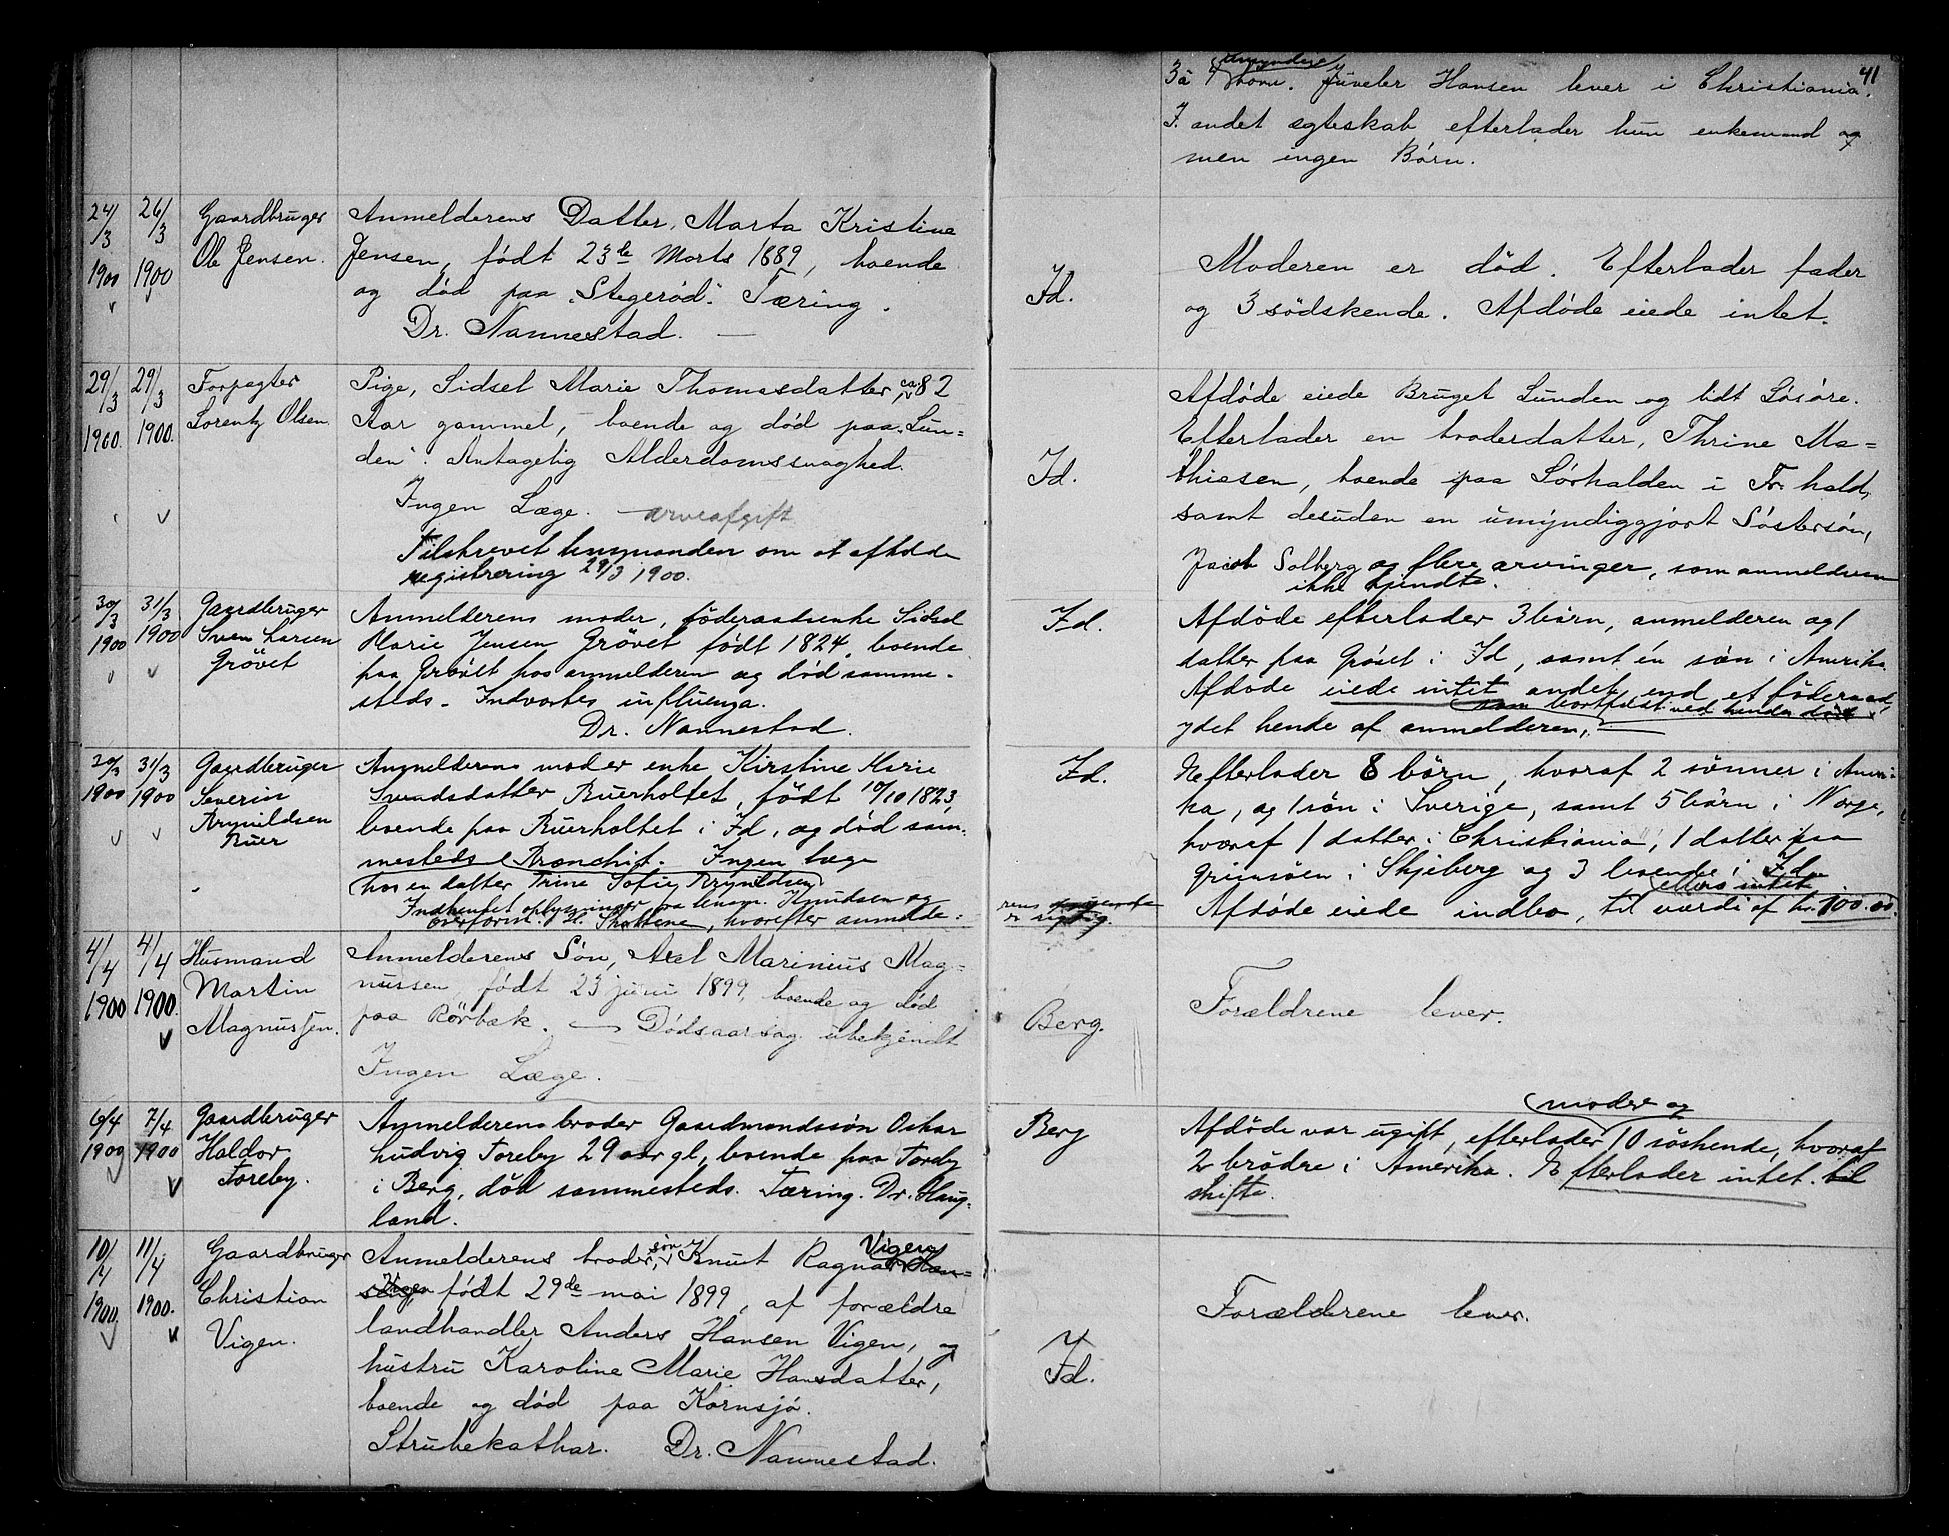 41
umyndige
3 à 4 børn. Juveler Hansen lever i Christiania.
I. andet ægteskab efterlader hun enkemand og
men ingen Børn.
24/3 1900
26/3 1900
Gaardbruger
Ole Jensen.
Anmelderens Datter, Marta Kristine
Jensen, født 23de Marts 1889, boende
og død paa "Stegerød". Tæring.
Dr. Nannestad.
Id.
Moderen er död. Efterlader fader
og 3 södskende. Afdøde eiede intet.
29/3 1900.
29/3 1900.
Forpagter
Lorentz Olsen.
Pige, Sidsel Marie Thomasdatter, ca. 82
Aar gammel, boende og død paa "Lun=
den". Antagelig Alderdomssvaghed.
Ingen Læge. arveafgift
Tilskrevet lensmanden om at afholde
registrering 29/3 1900.
Id.
Afdøde eiede Bruget Lunden og lidt Løsøre.
Efterlader en broderdatter, Thrine Ma=
thiesen, boende paa Sørhalden i Fr.hald,
samt desuden en umyndiggjort Søstersøn,
Jacob Solberg og flere arvinger, som anmelderen
ikke kjendte.
30/3 1900
31/3 1900
Gaardbruger
Sven Larsen
Grövet
Anmelderens moder, föderaadsenke Sidsel
Marie Jensen Grövet født 1824, boende
paa Grövet hos anmelderen og död samme-
steds. Indvortes influenza.
Dr. Nannestad.
Id.
Afdøde efterlader 3 børn, anmelderen og 1
datter paa Grövet i Id, samt én søn i Amerika.
Afdøde eiede intet andet end et föderaad,
som bortfaldt ved hendes död
ydet hende af anmelderen.
1900
31/3 1900
Gaardbruger
Severin
Brynildsen
Buer
Anmelderens moder enke Kirstine Marie
Svendsdatter Buerholtet, født 10/10 1823,
boende paa Buerholtet i Id, og død sam-
mesteds Bronchit. Ingen læge
hos en datter Trine Sofie Brynildsen
Indhentet oplysninger fra lensm. Knudsen og
Skattene, hvorefter anmelde=
rens
er rigtig.
Id.
Efterlader 8 börn, hvoraf 2 sönner i Ameri-
ka, og 1 søn i Sverige, samt 5 børn i Norge,
hvoraf 1 datter i Christiania, 1 datter paa
Grimsöen i Skjeberg og 3 boende i Id
ellers intet
Afdøde eiede indbo, til værdi af kr. 100.00.
4/4 1900
4/4 1900.
Husmand
Martin
Magnussen.
Anmelderens Søn, Axel Marinius Mag=
nussen, født 23 juni 1899, boende og død
paa Rörbæk. — Dødsaarsag ubekjendt
Ingen Læge.
Berg.
Forældrene lever.
6/4 1900
7/4 1900
Gaardbruger
Haldor
Foreby.
Anmelderens broder Gaardmandssøn Oskar
Ludvig Foreby 29 aar gl., boende paa Foreby
i Berg, død sammesteds. Tæring. Dr. Haug-
land.
Berg
moder og
Afdøde var ugift, efterlader 10 söskende, hvoraf
2 brödre i Amerika. Efterlader intet til
skifte.
10/4 1900.
11/4 1900.
Gaardbruger
Christian
Vigen.
Anmelderens brodersøn, Knut Ragnar Han=
Vigen
sen født 29de mai 1899, af forældre
landhandler Anders Hansen Vigen, og
hustru Karoline Marie Hansdatter,
boende og død paa Kornsjø.
Strubekathar. Dr. Nannestad.
Id.
Forælderene lever.